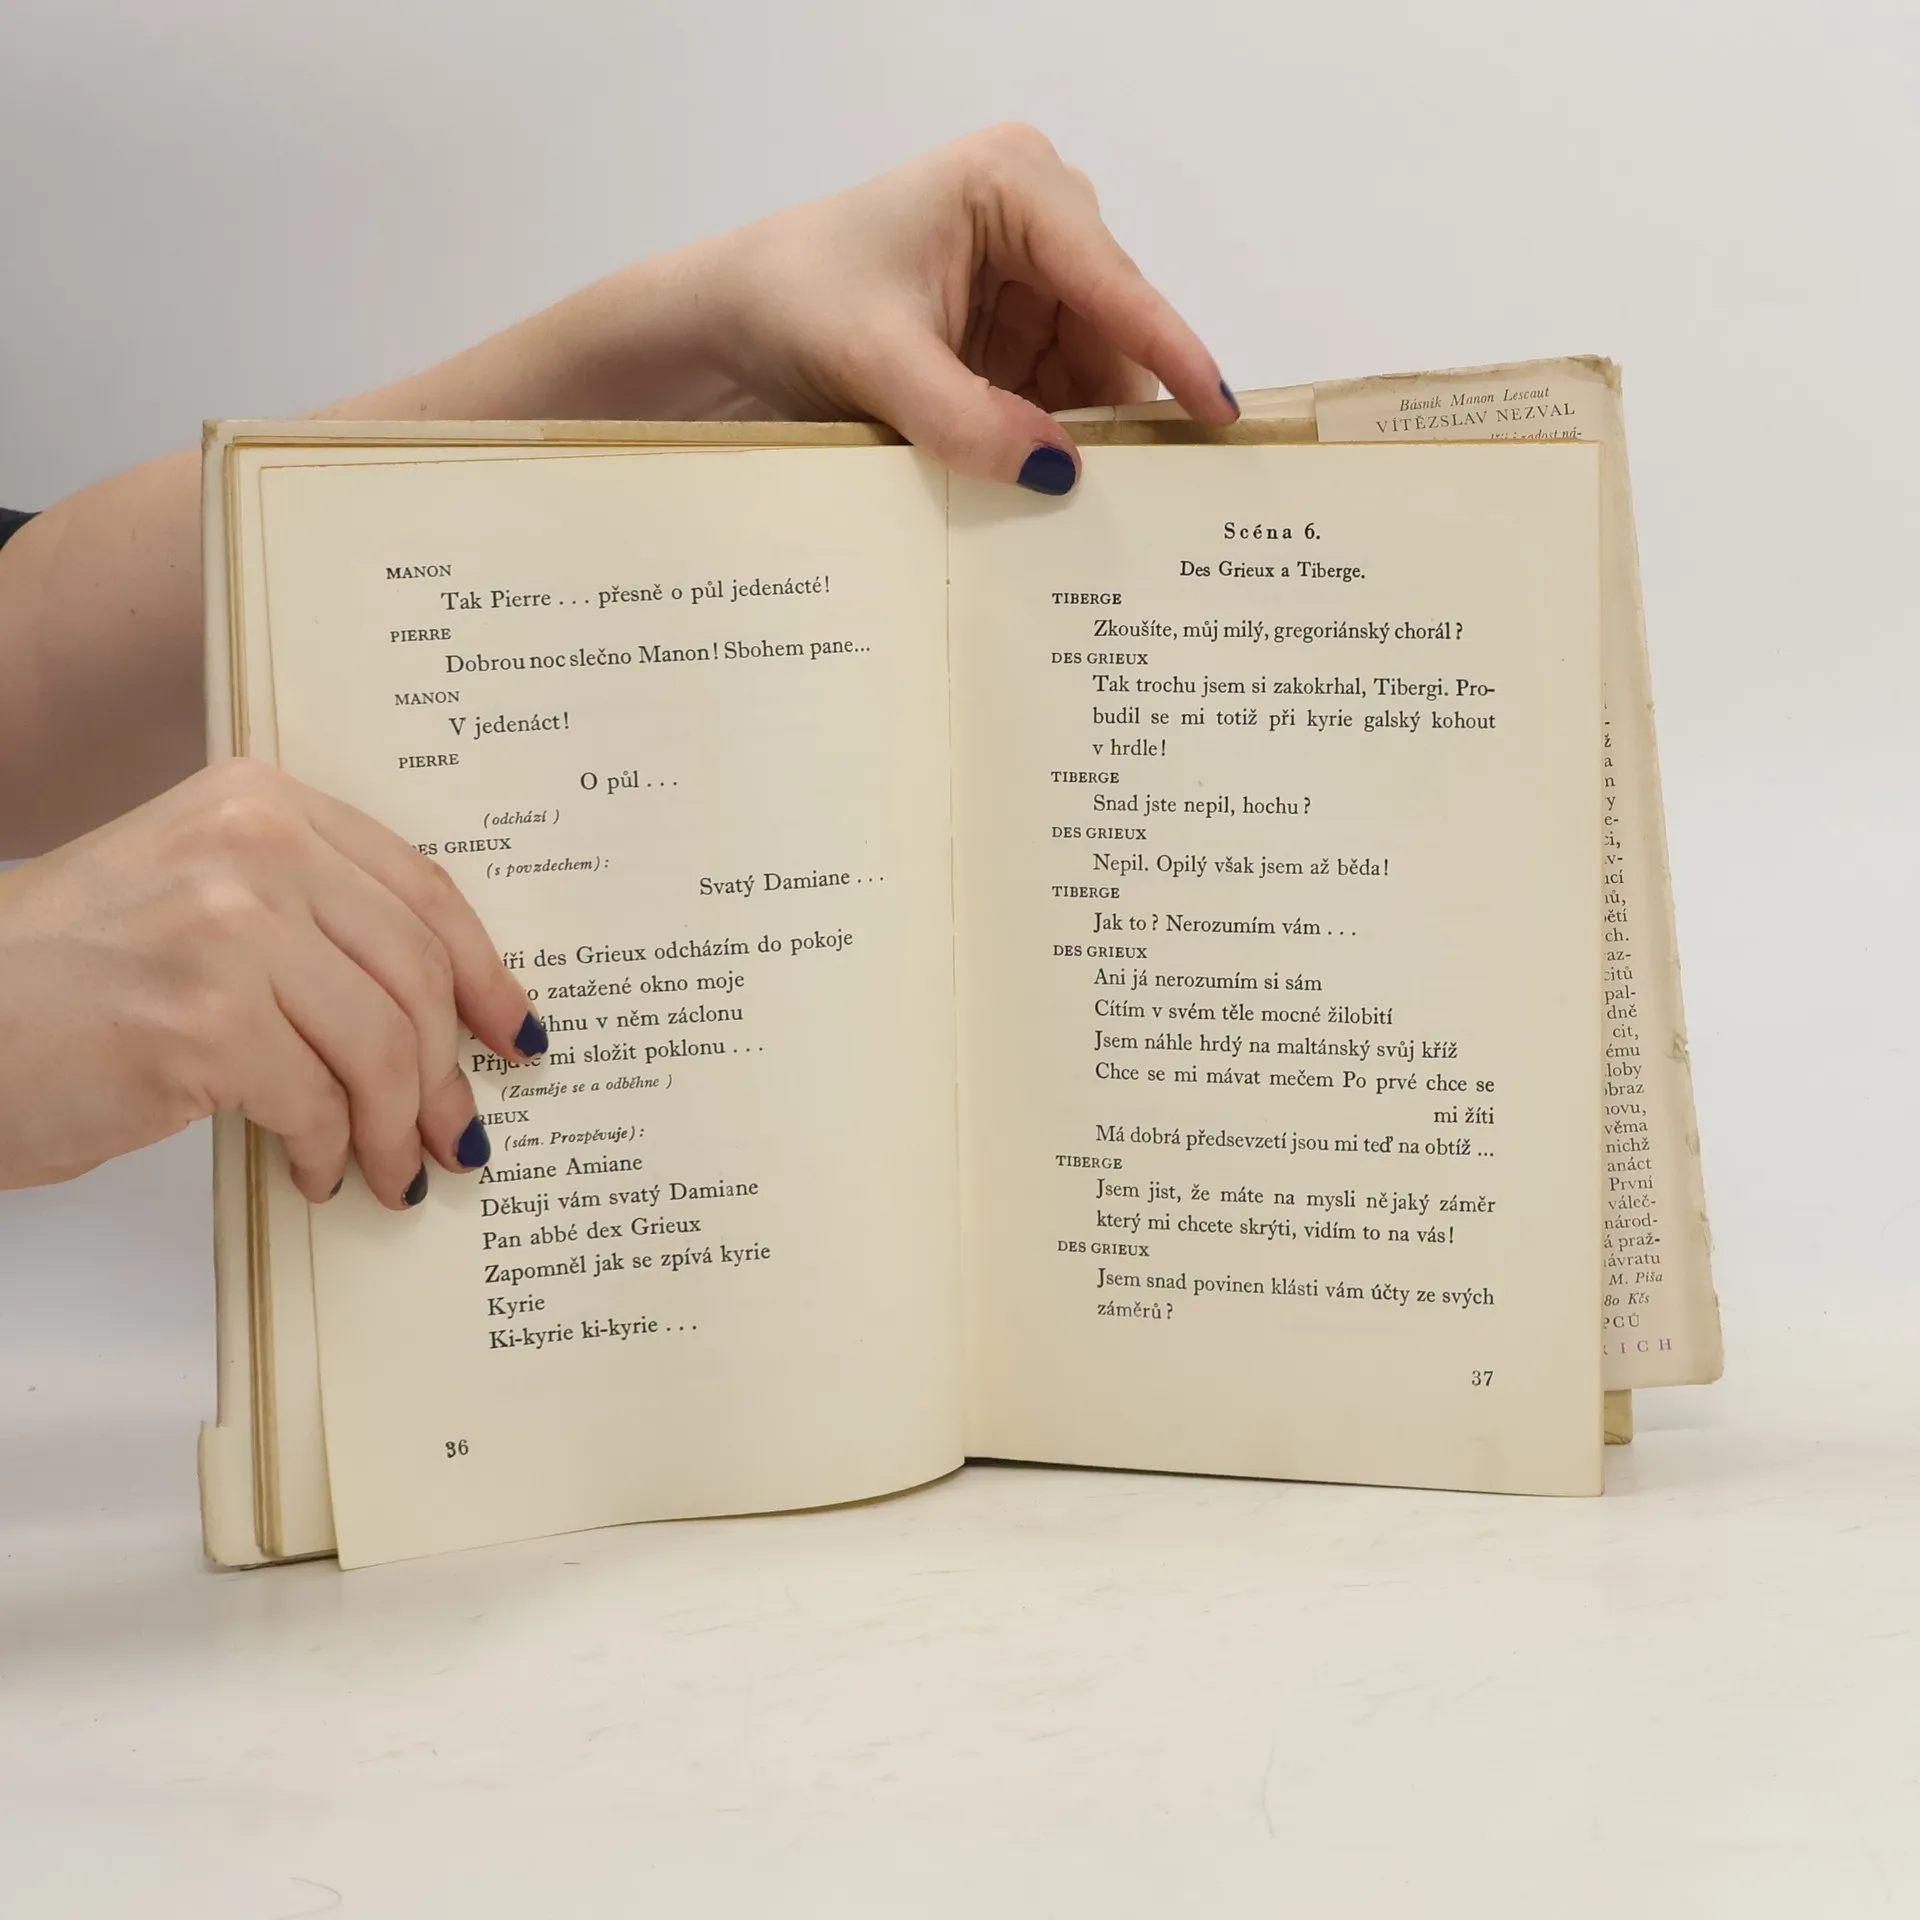 MANON
Tak Pierre . . . přesně o půl jedenácté!
PIERRE
Dobrou noc slečno Manon! Sbohem pane...
MANON
V jedenáct!
PIERRE
O půl . . .
(odchází )
GRIEUX
(s povzdechem) :
Svatý Damiane . . .
des Grieux odcházím do pokoje
zatažené okno moje
v něm záclonu
mi složit poklonu . . .
(Zasměje se a odběhne )
(sám. Prozpěvuje) :
Amiane Amiane
Děkuji vám svatý Damiane
Pan abbé dex Grieux
Zapomněl jak se zpívá kyrie
Kyrie
Ki-kyrie ki-kyrie . . .
36
Scéna 6.
Des Grieux a Tiberge.
TIBERGE
Zkoušíte, můj milý, gregoriánský chorál ?
DES GRIEUX
Tak trochu jsem si zakokrhal, Tibergi. Pro-
budil se mi totiž při kyrie galský kohout
v hrdle!
TIBERGE
Snad jste nepil, hochu ?
DES GRIEUX
Nepil. Opilý však jsem až běda!
TIBERGE
Jak to ? Nerozumím vám . . .
DES GRIEUX
Ani já nerozumím si sám
Cítím v svém těle mocné žilobití
Jsem náhle hrdý na maltánský svůj kříž
Chce se mi mávat mečem Po prvé chce se
mi žíti
Má dobrá předsevzetí jsou mi teď na obtíž ...
TIBERGE
Jsem jist, že máte na mysli nějaký záměr
který mi chcete skrýti, vidím to na vás!
DES GRIEUX
Jsem snad povinen klásti vám účty ze svých
záměrů ?
37
Básník Manon Lescaut
VÍTĚZSLAV NEZVAL
radost ná-
cit,
nichž
První
M. Píša
Kčs